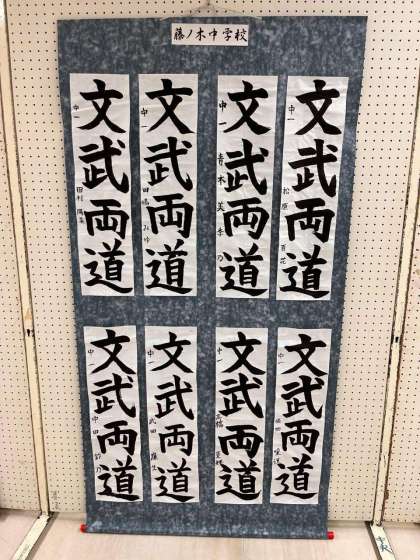 藤ノ木中学校
文武両道
中一
松原 百花
文武両道
中一
青木美季乃
文武両道
中一
田嶋
文武両道
中一
田村
文武両道
中一
文武両道
中一
高橋
文武両道
中一
武田
文武両道
中一
中田 鈴乃